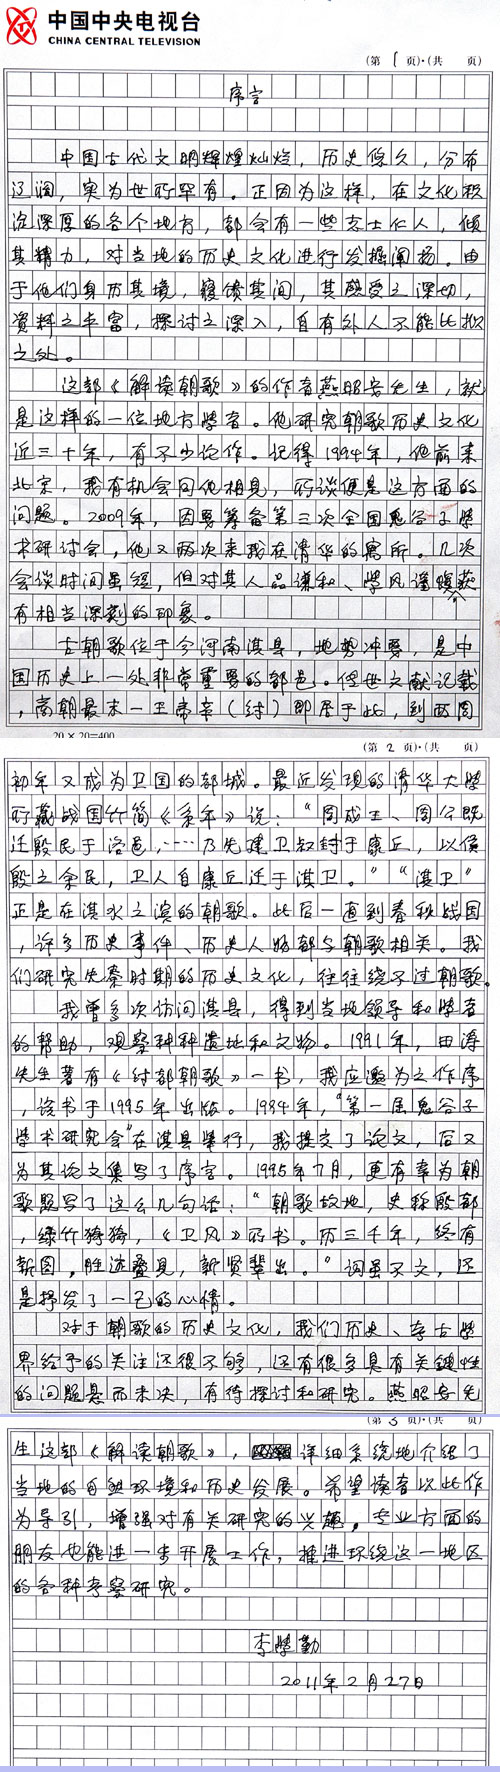 中国中央电视台
CHINA CENTRAL TELEVISION
(第 1 页)·(共 页)
序言
中国古代文明辉煌灿烂，历史悠久，分布
辽阔，实为世所罕有。正因为这样，在文化积
淀深厚的各个地方，都会有一些志士仁人，倾
其精力，对当地的历史文化进行发掘阐扬。由
于他们身历其境，寝馈其间，其感受之深切，
资料之丰富，探讨之深入，自有外人不能比拟
之处。
这部《解读朝歌》的作者燕昭安先生，就
是这样的一位地方学者。他研究朝歌历史文化
近三十年，有不少论作。记得1994年，他前来
北京，我有机会同他相见，所谈便是这方面的
问题。2009年，因要筹备第三次全国鬼谷子学
术研讨会，他又两次来我在清华的寓所。几次
会谈时间虽短，但对其人品谦和、学风谨慎获
有相当深刻的印象。
古朝歌位于今河南淇县，地势冲要，是中
国历史上一处非常重要的都邑。传世文献记载
，商朝最末一王帝辛（纣）即居于此，到西周
20×20=400
(第 2 页)·(共 页)
初年又成为卫国的都城。最近发现的清华大学
所藏战国竹简《系年》说：“周成王、周公既
迁殷民于洛邑，……乃先建卫叔封于康丘，以侯
殷之余民，卫人自康丘迁于淇卫。”“淇卫”
正是在淇水之滨的朝歌。此后一直到春秋战国
，许多历史事件、历史人物都与朝歌相关。我
们研究先秦时期的历史文化，往往绕不过朝歌。
我曾多次访问淇县，得到当地领导和学者
的帮助，观察种种遗地和文物。1991年，田涛
先生著有《纣都朝歌》一书，我应邀为之作序
，该书于1995年出版。1994年，“第一届鬼谷子
学术研究会”在淇县举行，我提交了论文，后又
为其论文集写了序言。1995年7月，更有幸为朝
歌题写了这么几句话：“朝歌故地，史称殷都
，绿竹猗猗，《卫风》所书。历三千年，终有
新图，胜迹叠见，新贤辈出。”词虽不文，还
是抒发了一己的心情。
对于朝歌的历史文化，我们历史、考古学
界给予的关注还很不够，还有很多具有关键性
的问题悬而未决，有待探讨和研究。燕昭安先
(第 3 页)·(共 页)
生这部《解读朝歌》，详细系统地介绍了
当地的自然环境和历史发展。希望读者以此作
为导引，增强对有关研究的兴趣。专业方面的
朋友也能进一步开展工作，推进环绕这一地区
的各种考察研究。
李学勤
2011年2月27日